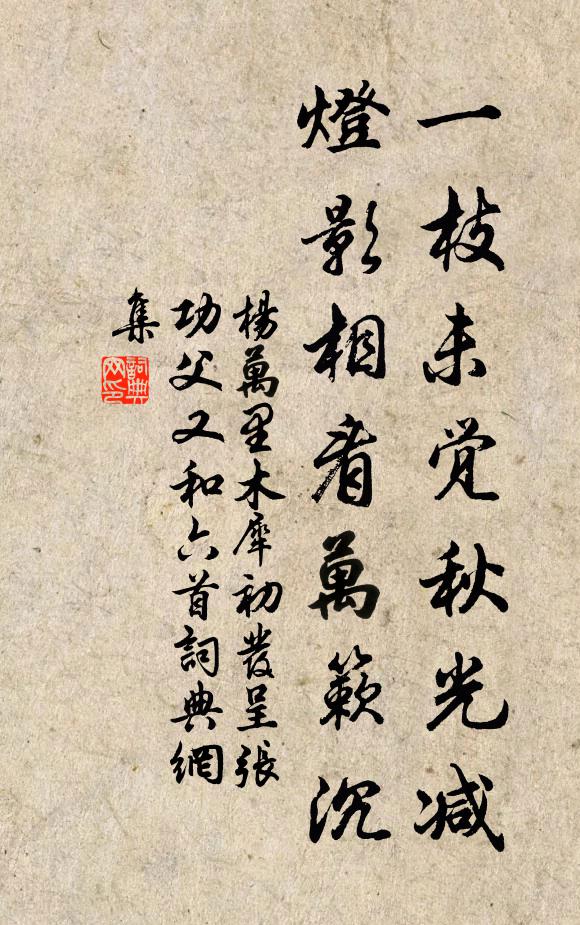 一枝未觉秋光减
燈影相看萬籁沉
楊萬里木犀初發呈張
功父又和六首詞典網
集
詞典
网印